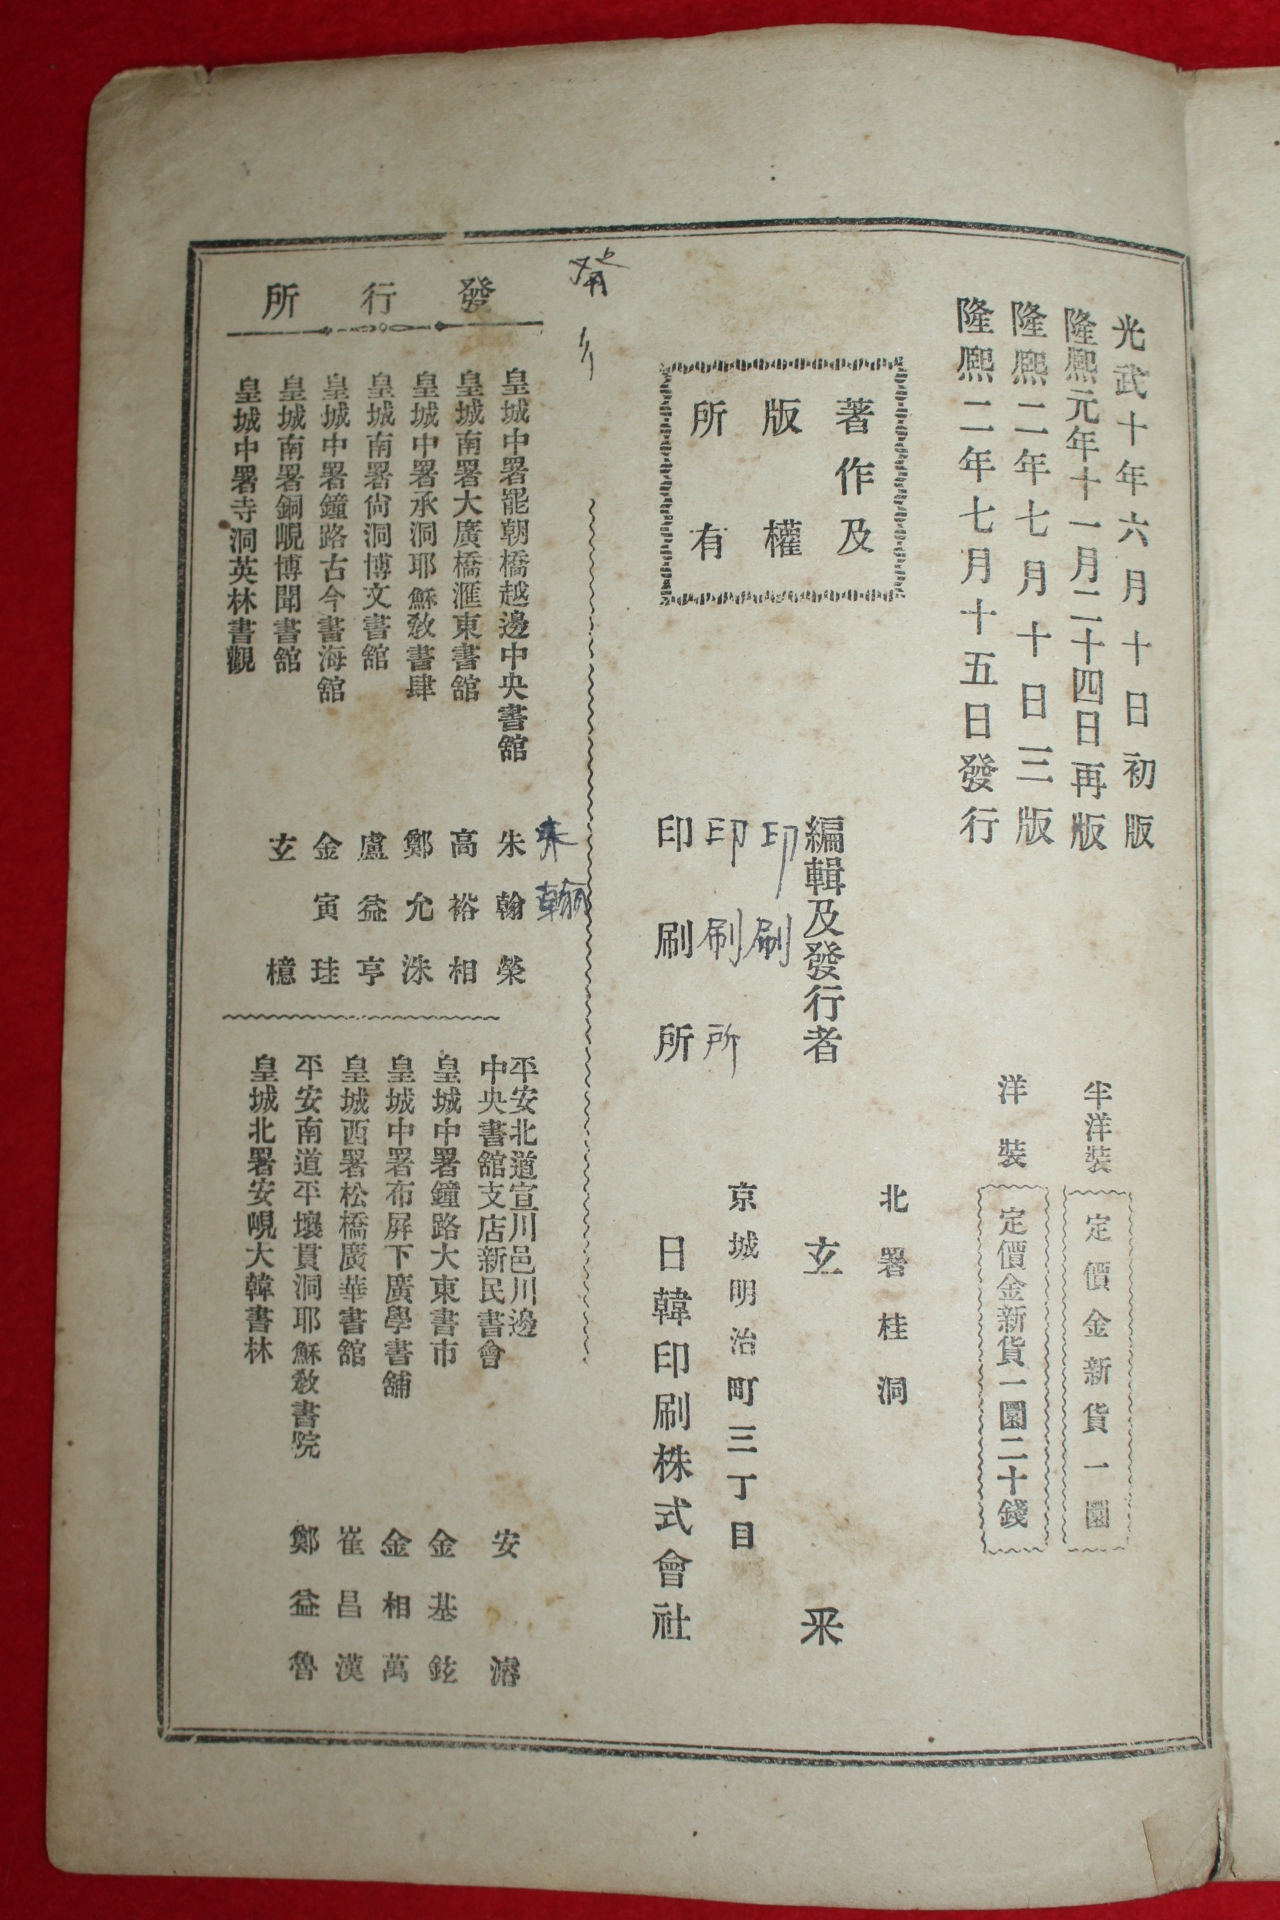 光武十年六月十日初版
隆熙元年十一月二十四日再版
隆熙二年七月十日三版
隆熙二年七月十五日發行
半洋裝 定價金新貨一圜
洋裝 定價金新貨一圜二十錢
著作及
版權
所有
北署桂洞
編輯及發行者 玄采
印刷
京城明治町三丁目
印刷所
印刷所 日韓印刷株式會社
發行
發行所
皇城中署罷朝橋越邊中央書舘 朱翰榮
朱翰
皇城南署大廣橋滙東書舘 高裕相
皇城中署承洞耶穌敎書肆 鄭允洙
皇城南署尙洞博文書舘 盧益亨
皇城中署鐘路古今書海舘 金寅珪
皇城南署銅峴博聞書舘 玄檍
皇城中署寺洞英林書觀
平安北道宣川邑川邊
中央書舘支店新民書會 安濬
皇城中署鐘路大東書市 金基鉉
皇城中署布屛下廣學書舖 金相萬
皇城西署松橋廣華書舘 崔昌漢
平安南道平壤貫洞耶穌敎書院 鄭益魯
皇城北署安峴大韓書林